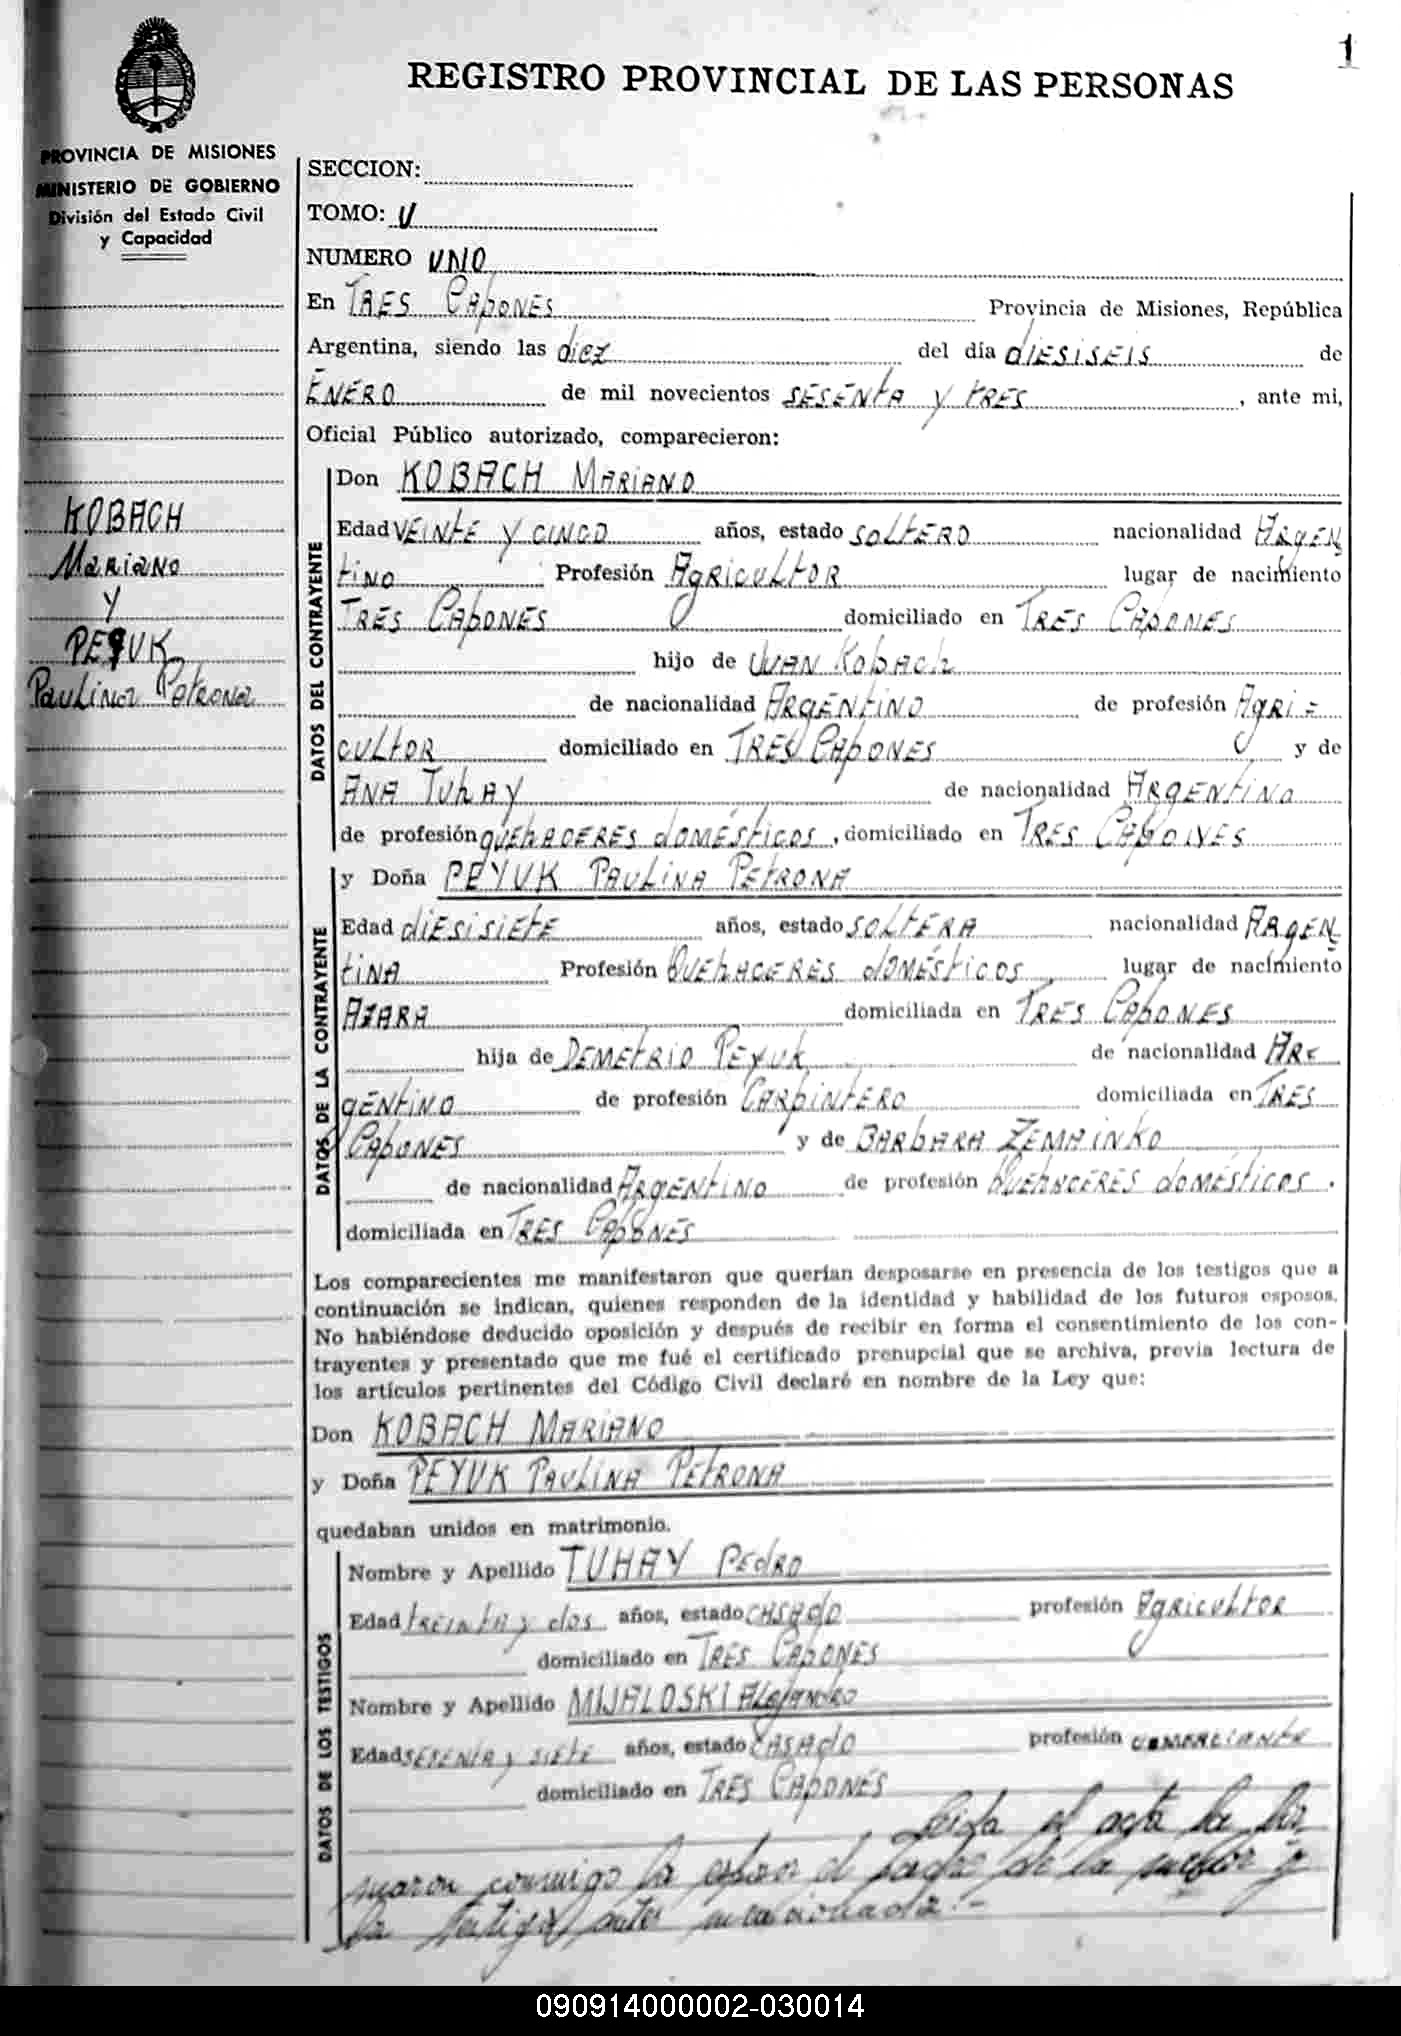 1
REGISTRO PROVINCIAL DE LAS PERSONAS
PROVINCIA DE MISIONES
MINISTERIO DE GOBIERNO
División del Estado Civil
y Capacidad
KOBACH
MARiANO
y
PEYUK
Paulina Petrona
SECCION:
TOMO: U
NUMERO UNO
En TRES CApONES Provincia de Misiones, República
Argentina, siendo las diez del día diESiSEIS de
ENERO de mil novecientos SESENtA y tRES, ante mi,
Oficial Público autorizado, comparecieron:
DATOS DEL CONTRAYENTE
Don KOBACH MARiANO
Edad VEiNtE y CiNCO años, estado SOLtERO nacionalidad ARgEN
tiNO Profesión AgRiCULtOR lugar de nacimiento
TRES CApONES domiciliado en TRES CApONES
hijo de JUAN KobACh
de nacionalidad ARGENtiNO de profesión AgRi=
CULtOR domiciliado en TRES CApONES y de
ANA TUhAY de nacionalidad ARGENtiNO
de profesión QUEhACERES dOMÉStiCOS, domiciliado en TRES CApONES
DATOS DE LA CONTRAYENTE
y Doña PEYUK PAULiNA PEtRONA
Edad diESiSiEtE años, estado SOLtERA nacionalidad ARgEN
tiNA Profesión QUEhACERES dOMÉStiCOS lugar de nacimiento
AZARA domiciliada en TRES CApONES
hija de DEMEtRiO PEYUK de nacionalidad AR=
gENtiNO de profesión CARpiNtERO domiciliada en TRES
CApONES y de BARbARA ZEMAiNKO
de nacionalidad ARgENtiNO de profesión QUEhACERES dOMÉStiCOS.
domiciliada en TRES CApONES
Los comparecientes me manifestaron que querían desposarse en presencia de los testigos que a
continuación se indican, quienes responden de la identidad y habilidad de los futuros esposos.
No habiéndose deducido oposición y después de recibir en forma el consentimiento de los con-
trayentes y presentado que me fué el certificado prenupcial que se archiva, previa lectura de
los artículos pertinentes del Código Civil declaré en nombre de la Ley que:
Don KOBACH MARiANO
y Doña PEYUK PAULiNA PEtRONA
quedaban unidos en matrimonio.
DATOS DE LOS TESTIGOS
Nombre y Apellido TUHAY PEdRO
Edad tREiNtA y dOS años, estado CASAdO profesión AgRiCULtOR
domiciliado en TRES CApONES
Nombre y Apellido MIJALOSKI AlejANdRO
Edad SESENtA y SiEtE años, estado CASAdO profesión COMERCiANtE
domiciliado en TRES CApONES
Leida el acta la fir
maron conmigo los esposos el padre de la menor y
los testigos antes mencionados.-
090914000002-030014